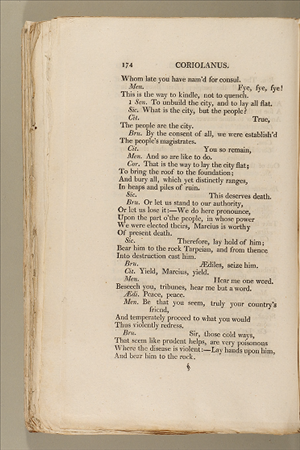 174 CORIOLANUS.
Whom late you have nam'd for consul.
Men. Fye, fye, fye!
This is the way to kindle, not to quench.
1 Sen. To unbuild the city, and to lay all flat.
Sic. What is the city, but the people?
Cit. True,
The people are the city.
Bru. By the consent of all, we were establish'd
The people's magistrates.
Cit. You so remain,
Men. And so are like to do.
Cor. That is the way to lay the city flat;
To bring the roof to the foundation;
And bury all, which yet distinctly ranges,
In heaps and piles of ruin.
Sic. This deserves death.
Bru. Or let us stand to our authority,
Or let us lose it:—We do here pronounce,
Upon the part o'the people, in whose power
We were elected theirs, Marcius is worthy
Of present death.
Sic. Therefore, lay hold of him;
Bear him to the rock Tarpeian, and from thence
Into destruction cast him.
Bru. Ædiles, seize him.
Cit. Yield, Marcius, yield.
Men. Hear me one word.
Beseech you, tribunes, hear me but a word.
Ædi. Peace, peace.
Men. Be that you seem, truly your country's
friend,
And temperately proceed to what you would
Thus violently redress.
Bru. Sir, those cold ways,
That seem like prudent helps, are very poisonous
Where the disease is violent:—Lay hands upon him,
And bear him to the rock.